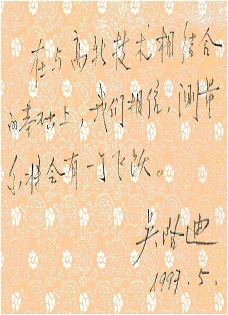 在与高新技术相结合
的基础上，我们相信，测量
尔将会有一个飞跃。
吴启迪
1997.5.